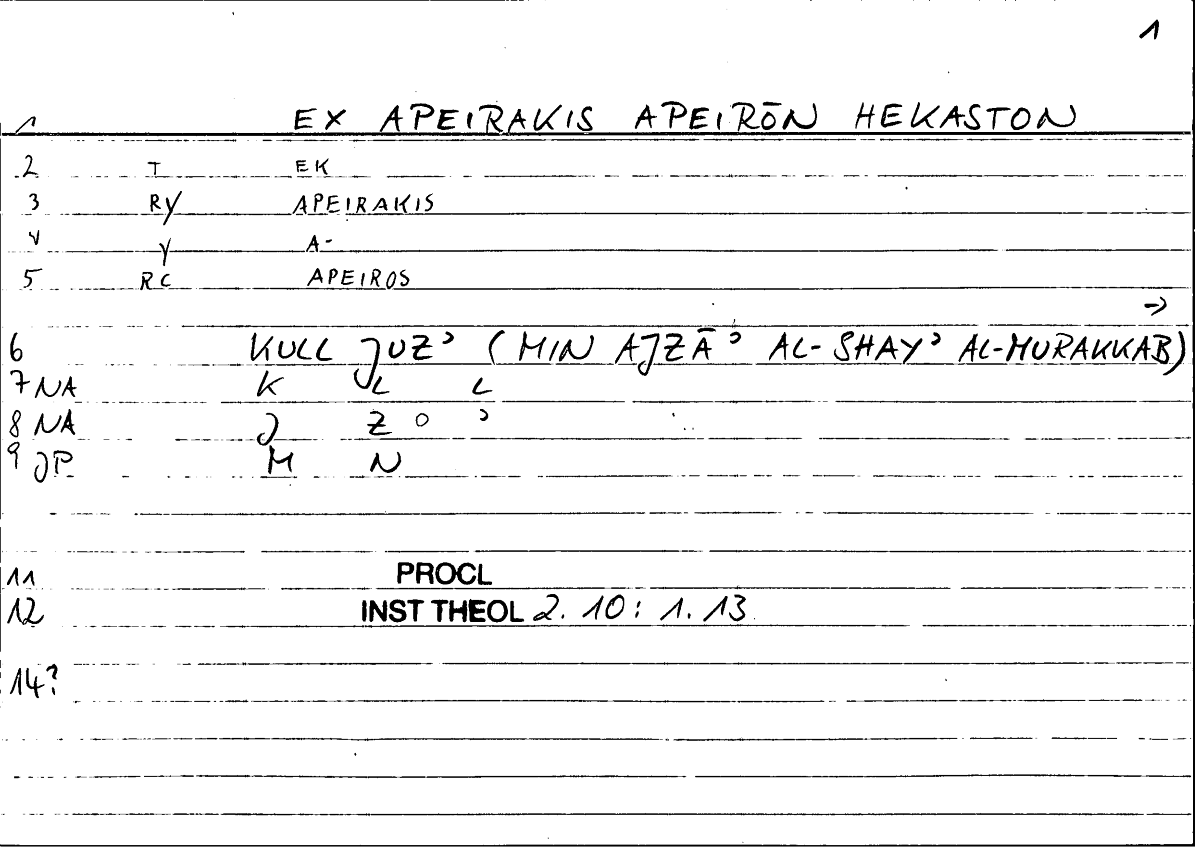 1
1 EX APEIRAKIS APEIRŌN HEKASTON
2 T EK
3 Ry APEIRAKIS
4 y A-
5 RC APEIROS
→
6 KULL JUZʾ (MIN AJZĀʾ AL-SHAYʾ AL-MURAKKAB)
7 NA K L L
8 NA J Z O ʾ
9 JP M N
11 PROCL
12 INST THEOL 2. 10 : 1. 13
14?